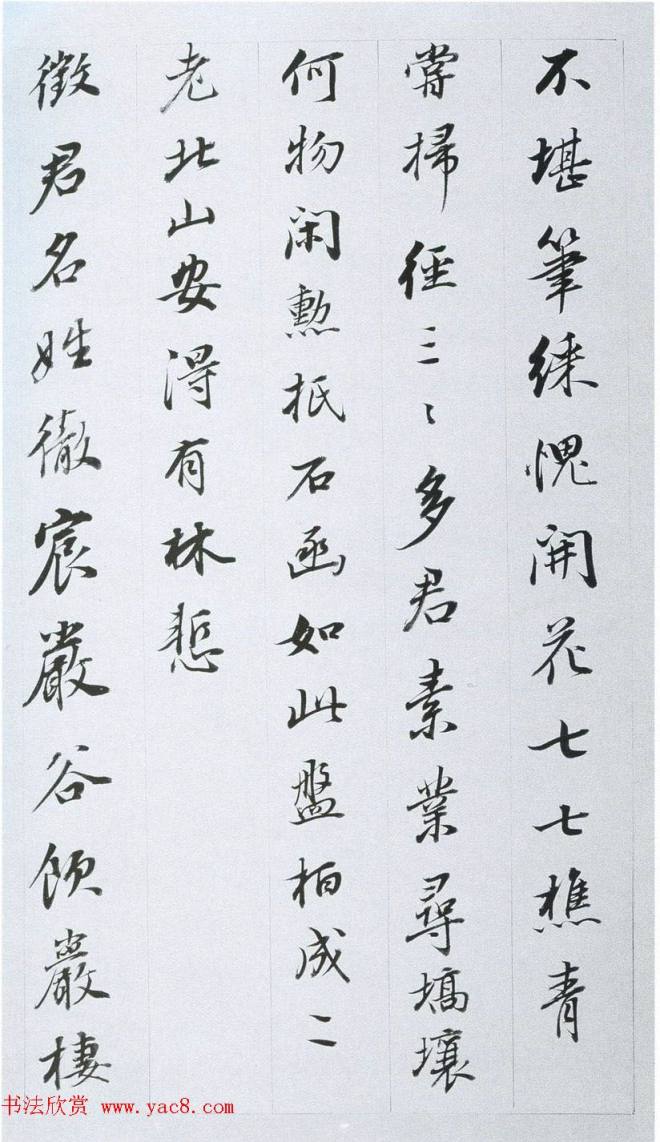 不堪筆綵愧開花七七樵青
嘗掃徑三〻多君素業尋墑壤
何物閑勲抵石函如此盤柏成二
老北山安得有林慙
徵君名姓徹宸嚴谷飲巖棲
书法欣赏 www.yac8.com